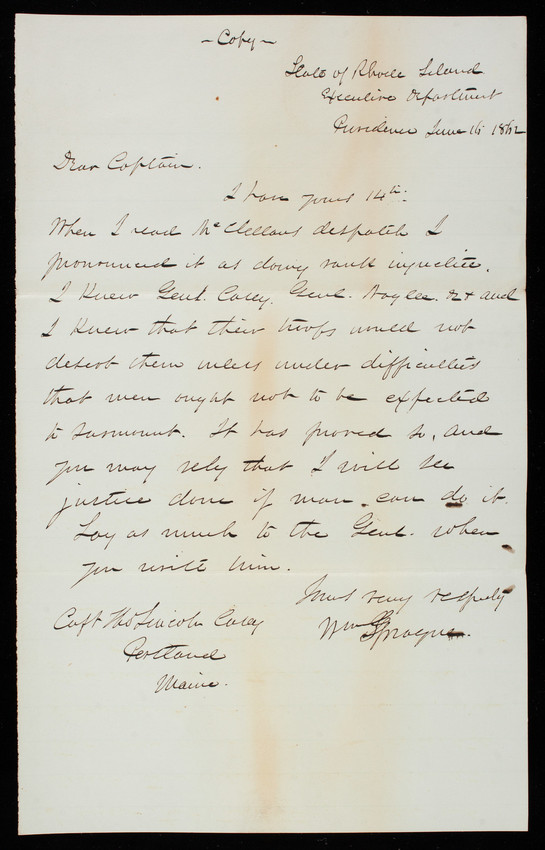 - Copy -
State of Rhode Island
Executive Department
Providence June 16 1862
Dear Captain.
I have yours 14th.
When I read McClellans despatch I
pronounced it as doing rank injustice.
I knew Genl. Casey, Genl. Naglee &c and
I knew that their troops would not
desert them unless under difficulties
that men ought not to be expected
to surmount. It has proved so, and
you may rely that I will see
justice done if man can do it.
Say as much to the Genl. when
you write him.
Yours very respcty
Wm Sprague.
Capt Thos Lincoln Casey
Portland
Maine.